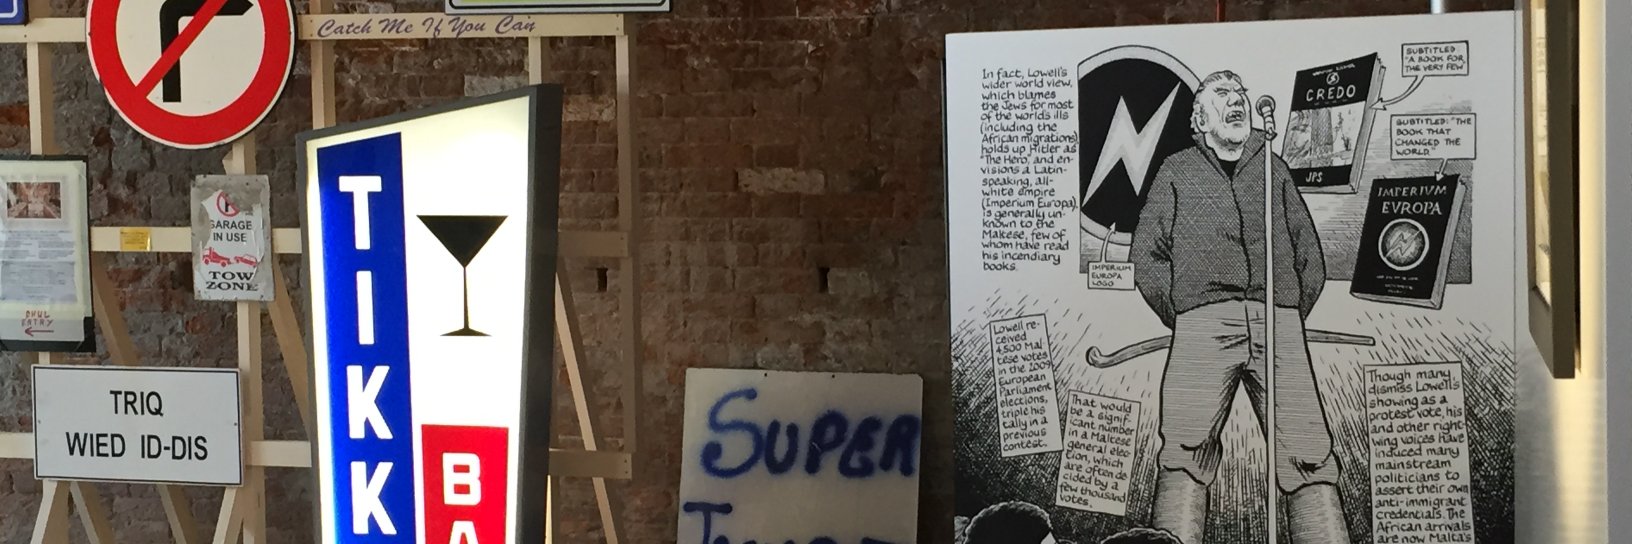 Catch Me If You Can
GARAGE
IN USE
TOW
ZONE
ONLY
ENTRY
TRIQ
WIED ID-DIS
TIKK
BA
SUPER
In fact, Lowell's
wider world view,
which blames
the Jews for most
of the world's ills
(including the
African migrations)
holds up Hitler as
"The Hero," and en-
visions a Latin-
speaking, all-
white empire
(Imperium Europa),
is generally un-
known to the
Maltese, few of
whom have read
his incendiary
books.
IMPERIUM
EUROPA
LOGO
CREDO
JPS
SUBTITLED:
"A BOOK FOR
THE VERY FEW"
SUBTITLED: "THE
BOOK THAT
CHANGED THE
WORLD."
IMPERIVM
EVROPA
Lowell re-
ceived
4,500 Mal-
tese votes
in the 2009
European
Parliament
elections,
triple his
tally in a
previous
contest.
That would
be a signif-
icant number
in a Maltese
general elec-
tion, which
are often de-
cided by a
few thousand
votes.
Though many
dismiss Lowell's
showing as a
protest vote, his
and other right-
wing voices have
induced many
mainstream
politicians to
assert their own
anti-immigrant
credentials. The
African arrivals
are now Malta's